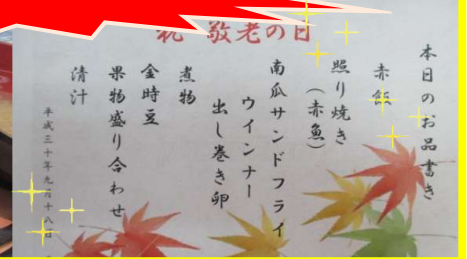 祝 敬老の日
本日のお品書き
赤飯
照り焼き
(赤魚)
南瓜サンドフライ
ウインナー
出し巻き卵
煮物
金時豆
果物盛り合わせ
清汁
平成三十年九月十八日